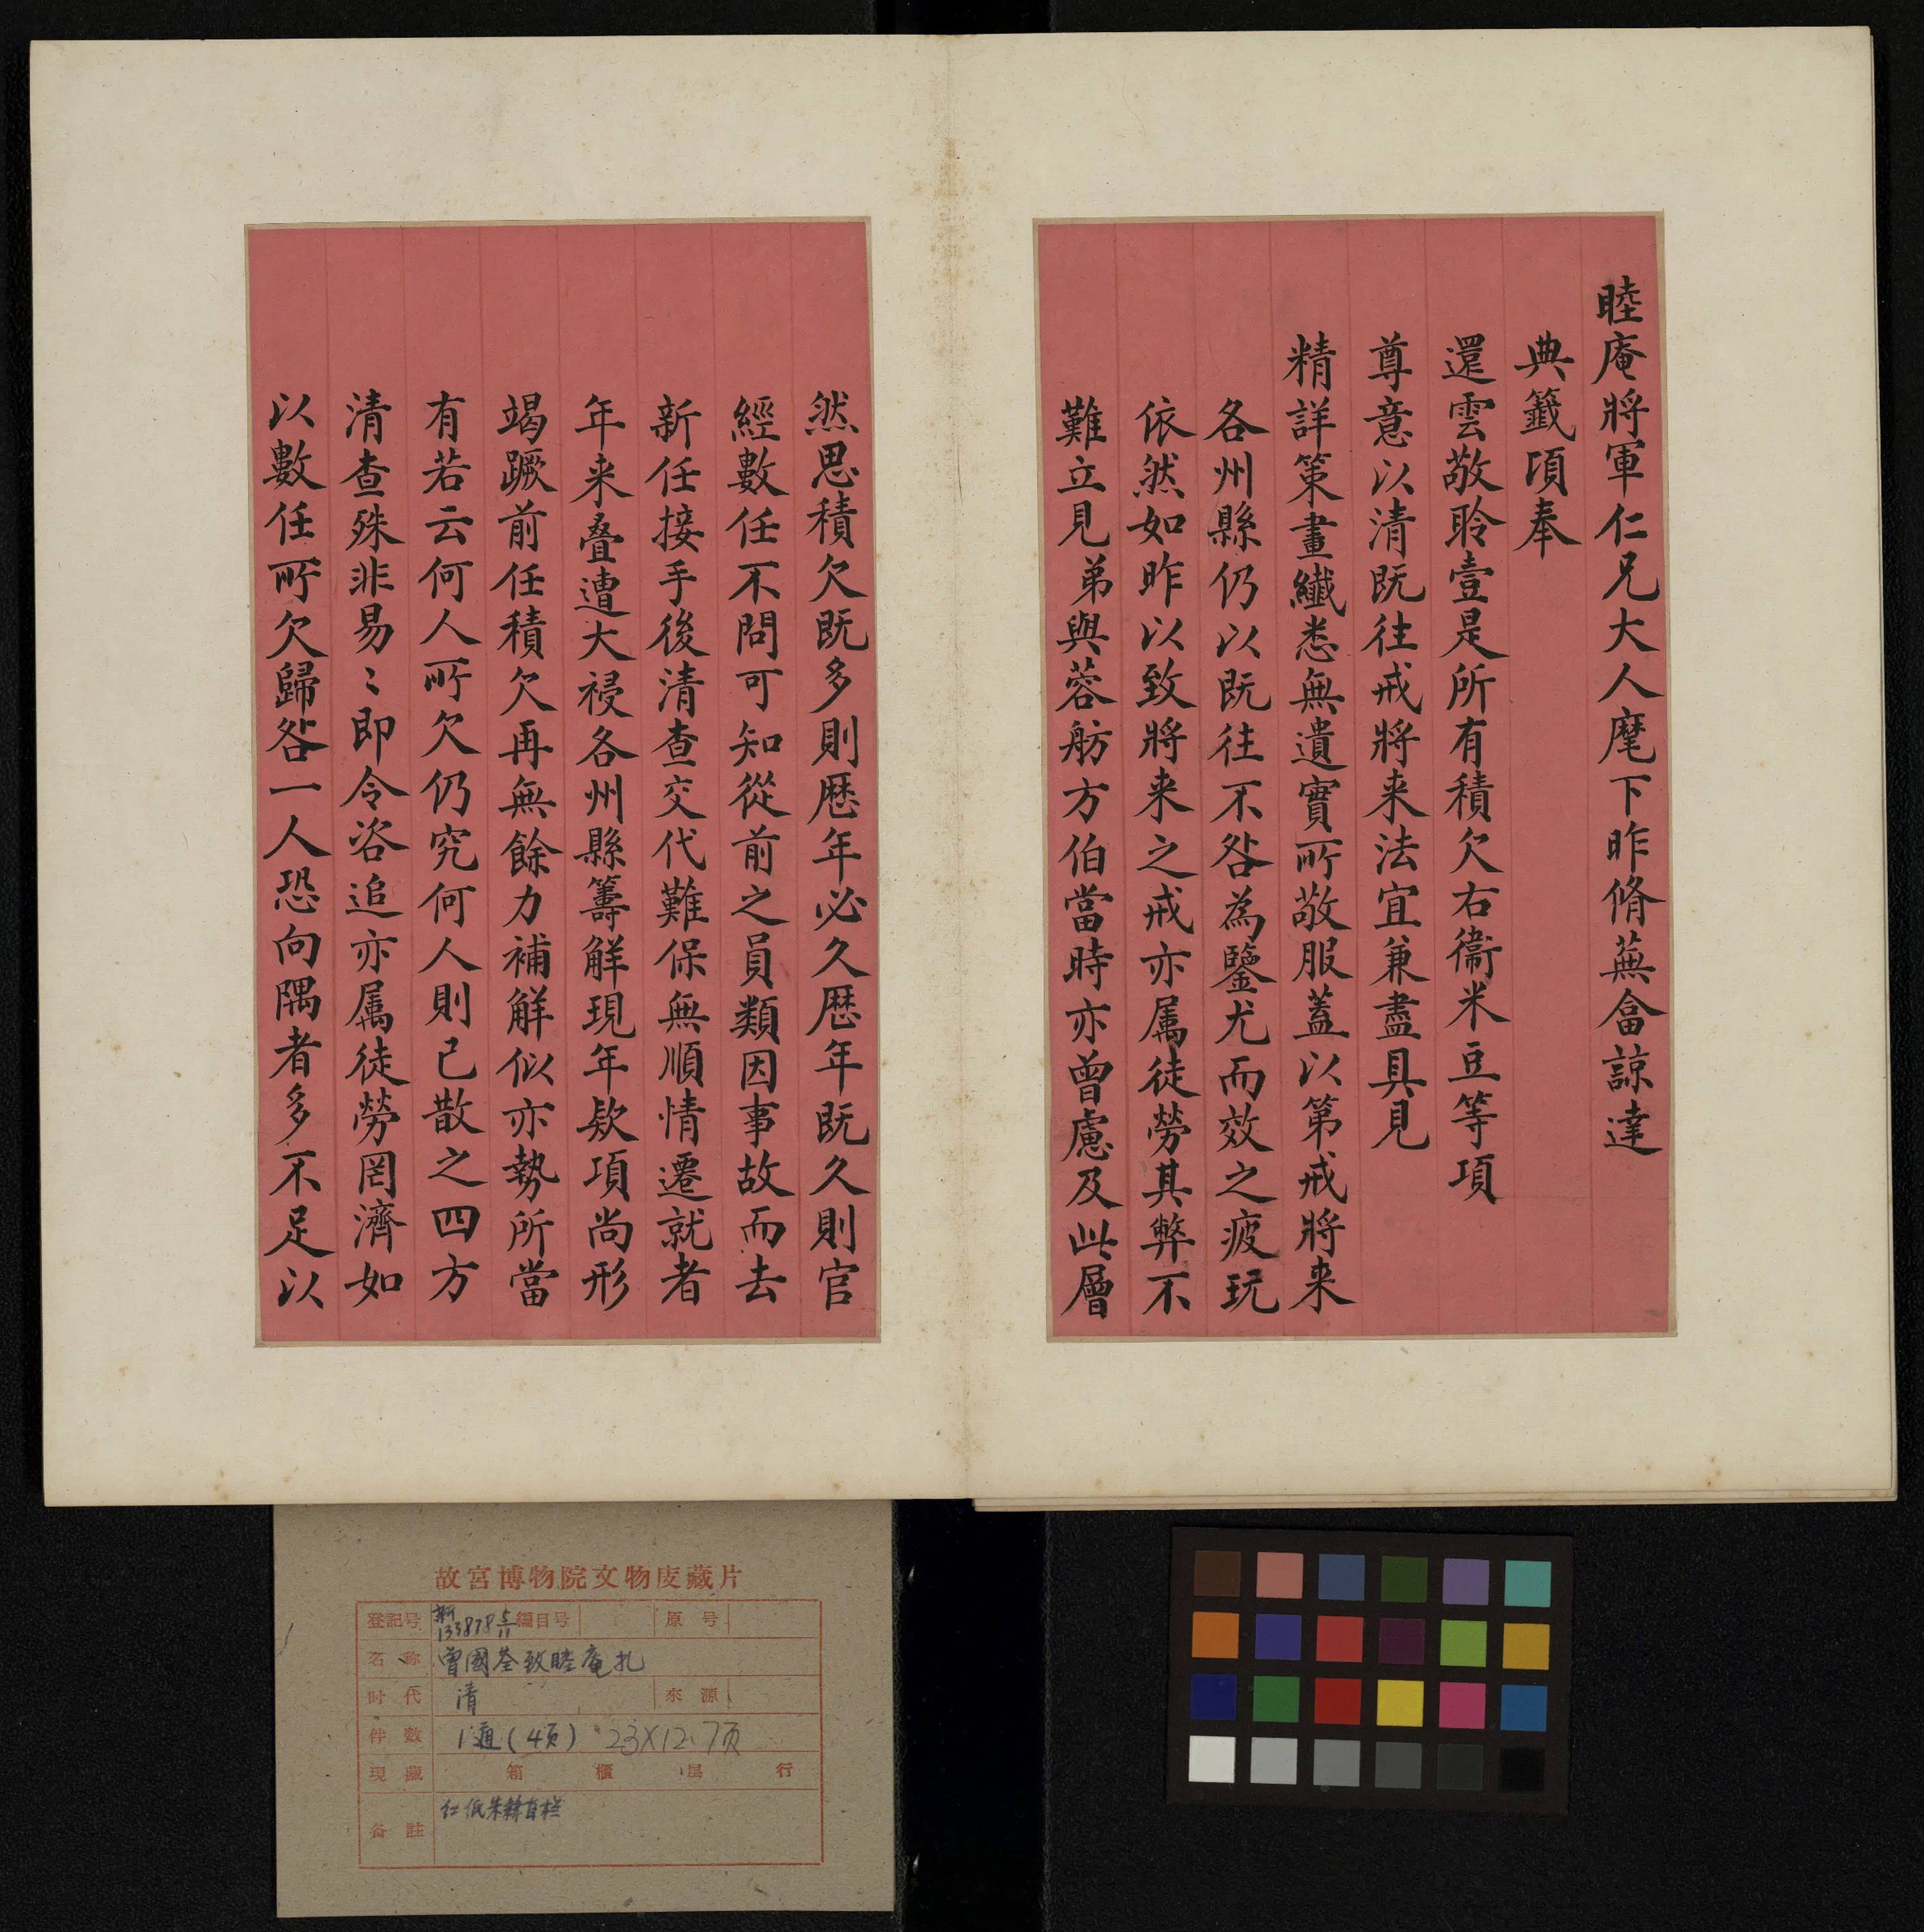 睦庵將軍仁兄大人麾下昨脩蕪畣諒達
典籤頃奉
還雲敬聆壹是所有積欠右衞米豆等項
尊意以清既往戒將来法宜兼盡具見
精詳策畫纖悉無遺實所敬服蓋以第戒將来
各州縣仍以既往不咎為鑒尤而效之疲玩
依然如昨以致將来之戒亦属徒勞其弊不
難立見弟與蓉舫方伯當時亦曾慮及此層
然思積欠既多則歴年必久歴年既久則官
經數任不問可知從前之員類因事故而去
新任接手後清查交代難保無順情遷就者
年来叠遭大祲各州縣籌解現年欵項尚形
竭蹶前任積欠再無餘力補解似亦勢所當
有若云何人所欠仍究何人則已散之四方
清查殊非易〻即令咨追亦属徒勞罔濟如
以數任所欠歸咎一人恐向隅者多不足以
故宮博物院文物庋藏片
登記号 新133878 5/11 編目号 原号
名称 曾國荃致睦庵札
时代 清 來源
件数 1通(4頁) 23X12.7頁
現藏 箱 櫃 层 行
备註 红纸朱絲直栏